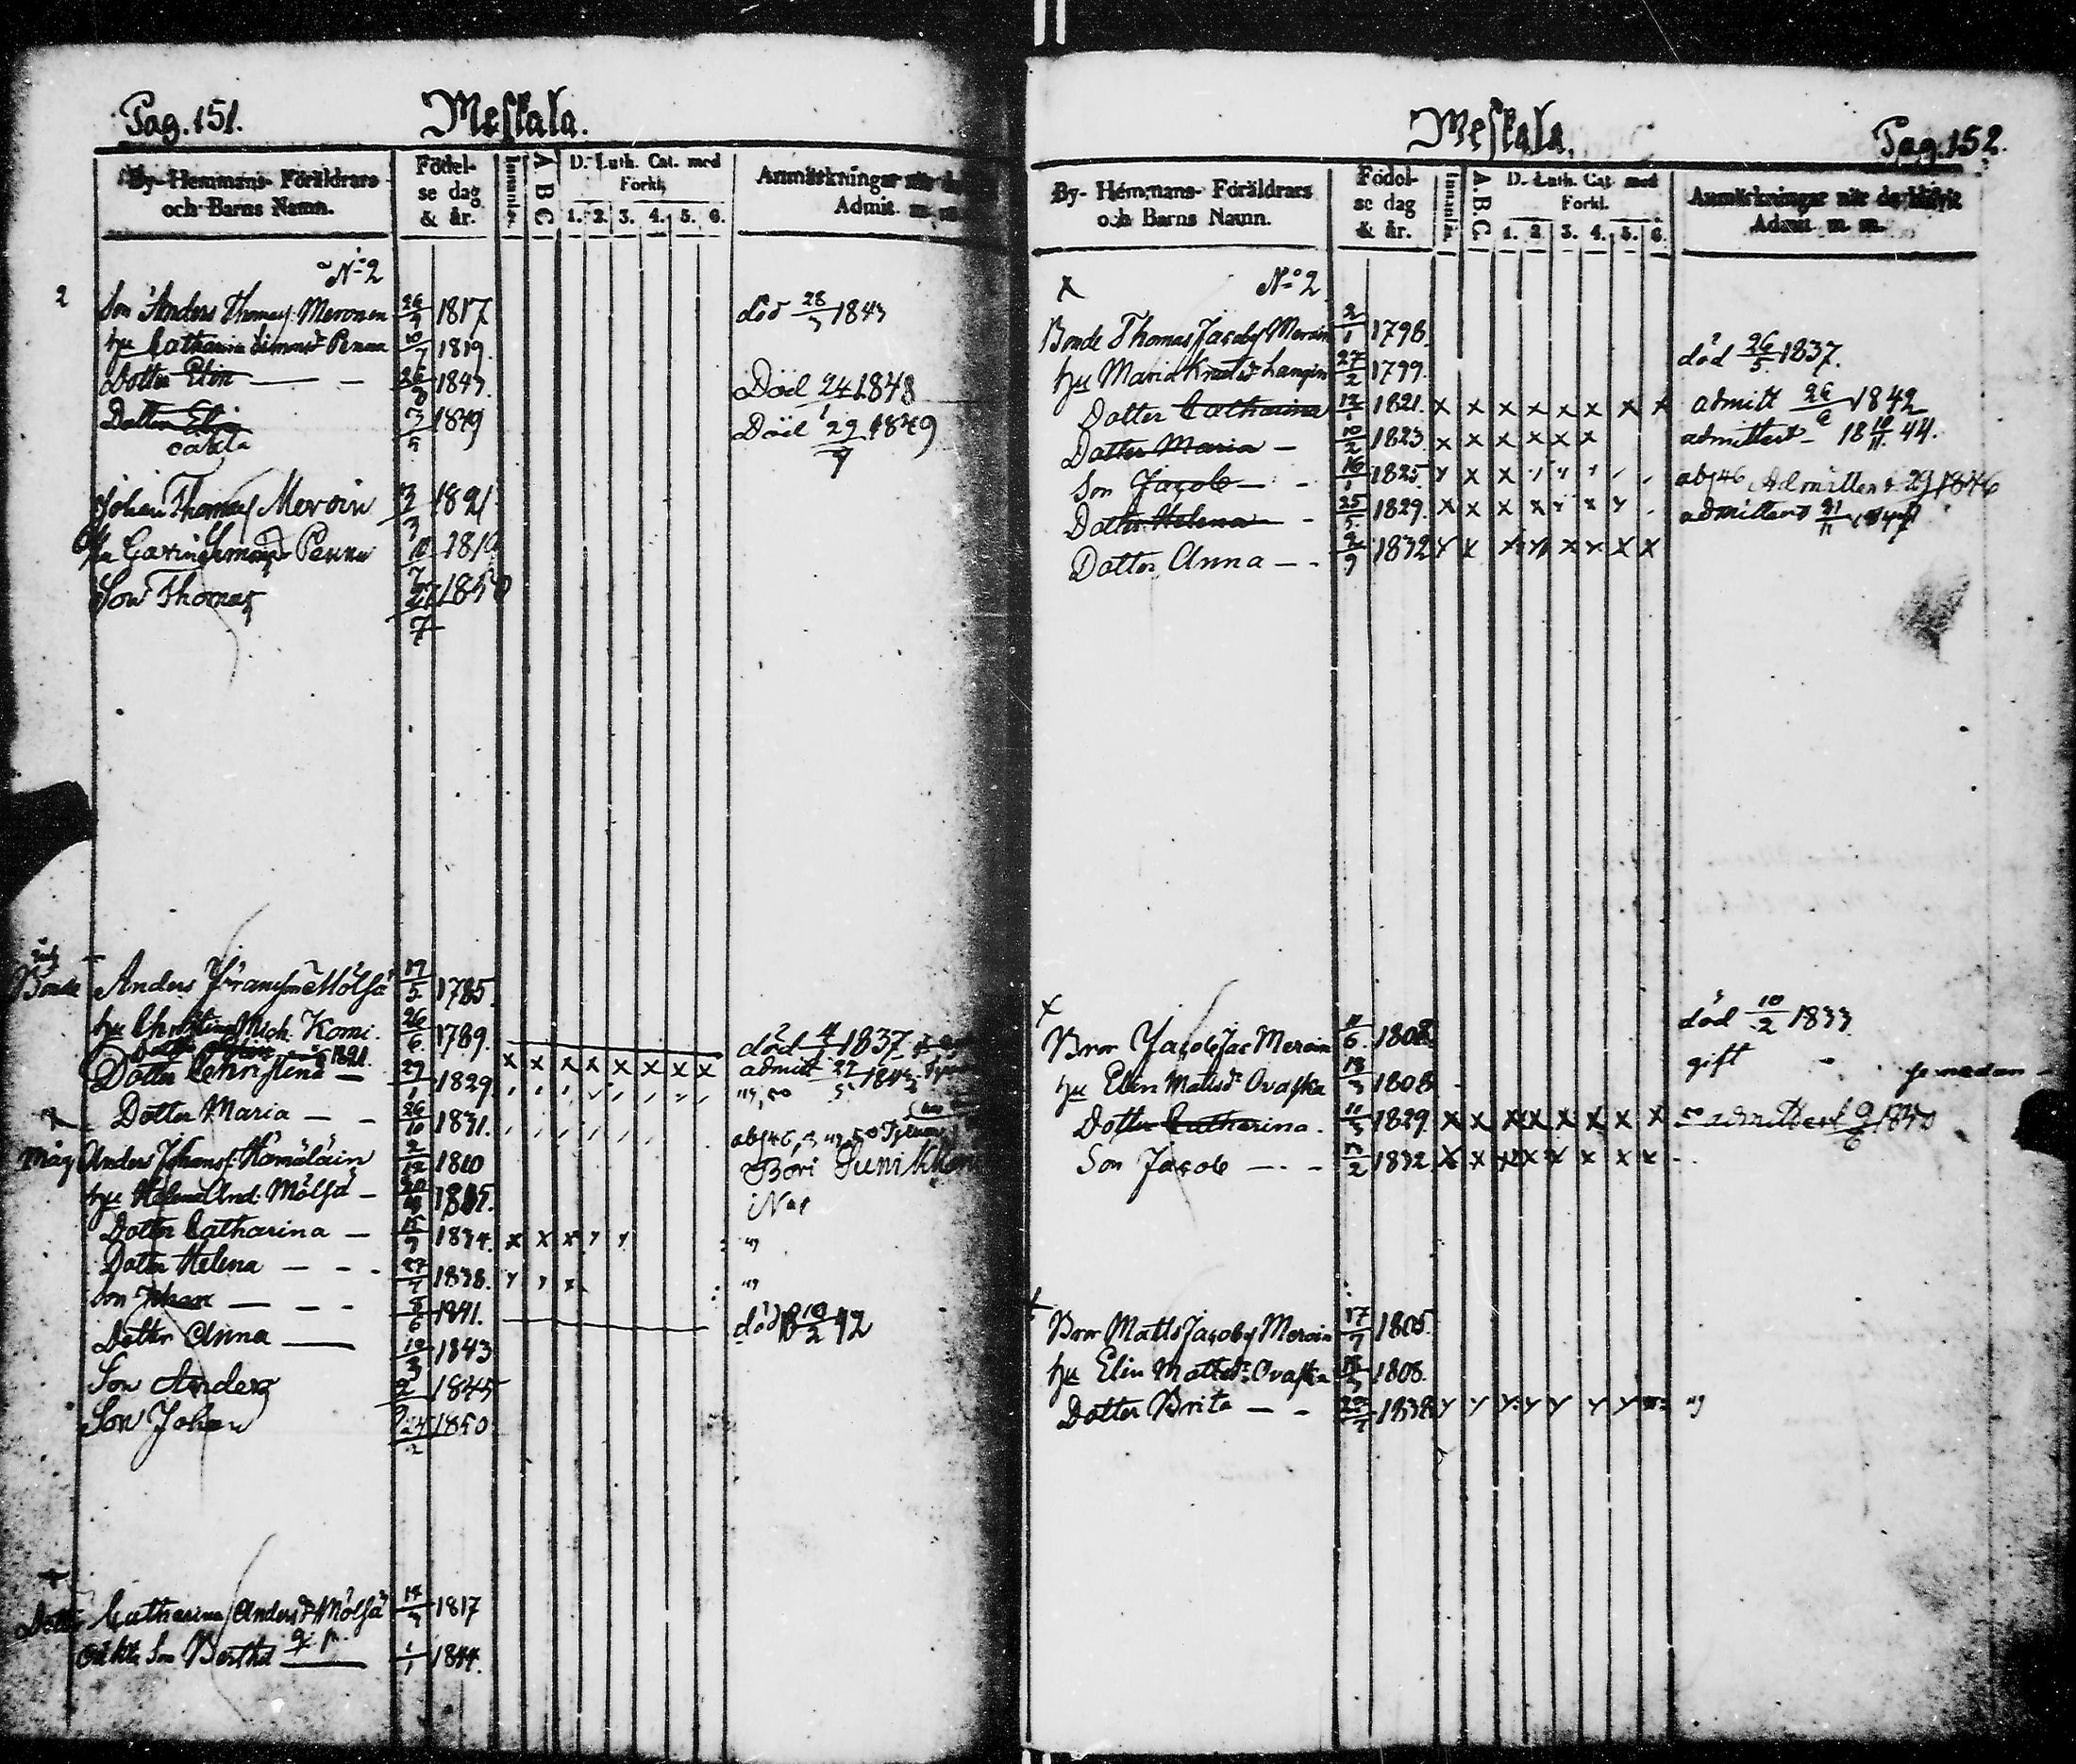 Pag. 151. Meskala.
By- Hemmans- Föräldrars och Barns Namn.
Födelse dag & år.
Innanläs.
A B C
D. Luth. Cat. med Förkl.
1. 2. 3. 4. 5. 6.
Anmärkningar när de
Admit. m. m.
N:o 2
2 Son Anders Thomas Meronen 1817 död 28/3 1843
hu Catharina Simonsdr Penna 10/7 1819.
Dotter Elin — — 1843. Död 24 1848
Dotter Elin 3/5 1849 Död 29/9 1849
oäkta
Johan Thomas Meroin 3/3 1821
hu Carin Penna 10/7 1819
Son Thomas 27/7 1850
Bonde Anders Mölsä 17/5 1785.
hu Christina Mich. Komi. 26/6 1789.
1821. död 4/1 1837
Dotter Christina — 29/1 1829 x x x x x x x x admit 27/5 1843
Dotter Maria — — 26/10 1831.
Måg Anders Johans. Hämäläin 2/12 1810
hu Helena And. Mölsä —
Dotter Catharina — 15/9 1834. x x x
Dotter Helena — — - 27/7 1838.
Son Johan — — - 1841. död 10/2 42
Dotter Anna — 10/3 1843
Son Anders 1845
Son Johan 24/2 1850
Dotter Catharina Andersdr Mölsä 14/3 1817
oäkta Son Berthil 1/1 1844.
Meskala. Pag. 152.
By- Hemmans- Föräldrars och Barns Namn.
Födelse dag & år.
Innanläs.
A.B.C.
D. Luth. Cat. med Förkl.
1. 2. 3. 4. 5. 6.
Anmärkningar när de blifvit Admit. m. m.
x N:o 2
Bonde Thomas Jacobs Meroin 2/1 1798.
hu Maria Knutsdr Langin 27/2 1799. död 26/5 1837.
Dotter Catharina 12/1 1821. x x x x x x x x admitt 26/6 1842
Dotter Maria — 10/2 1823 x x x x x x admitterd 18 10/11 44.
Son Jacob — - 16/1 1825. Admitterad 1846
Dotter Helena — - 25/5 1829. x x x x admitterd
Dotter Anna — - 2/9 1832
x
Bror Jacob Jac Meroin 11/6 1808. död 10/2 1833
hu Elin Matsdr Ovaska 13/3 1808 gift nedan
Dotter Catharina. 11/3 1829 x x x x x x x x admitterd
Son Jacob — - - 13/2 1832 x x x x x x x x
Bror Matts Jacobs Meroin 17/9 1805.
hu Elin Mattsdr Ovaska 1808.
Dotter Brita — - 1838